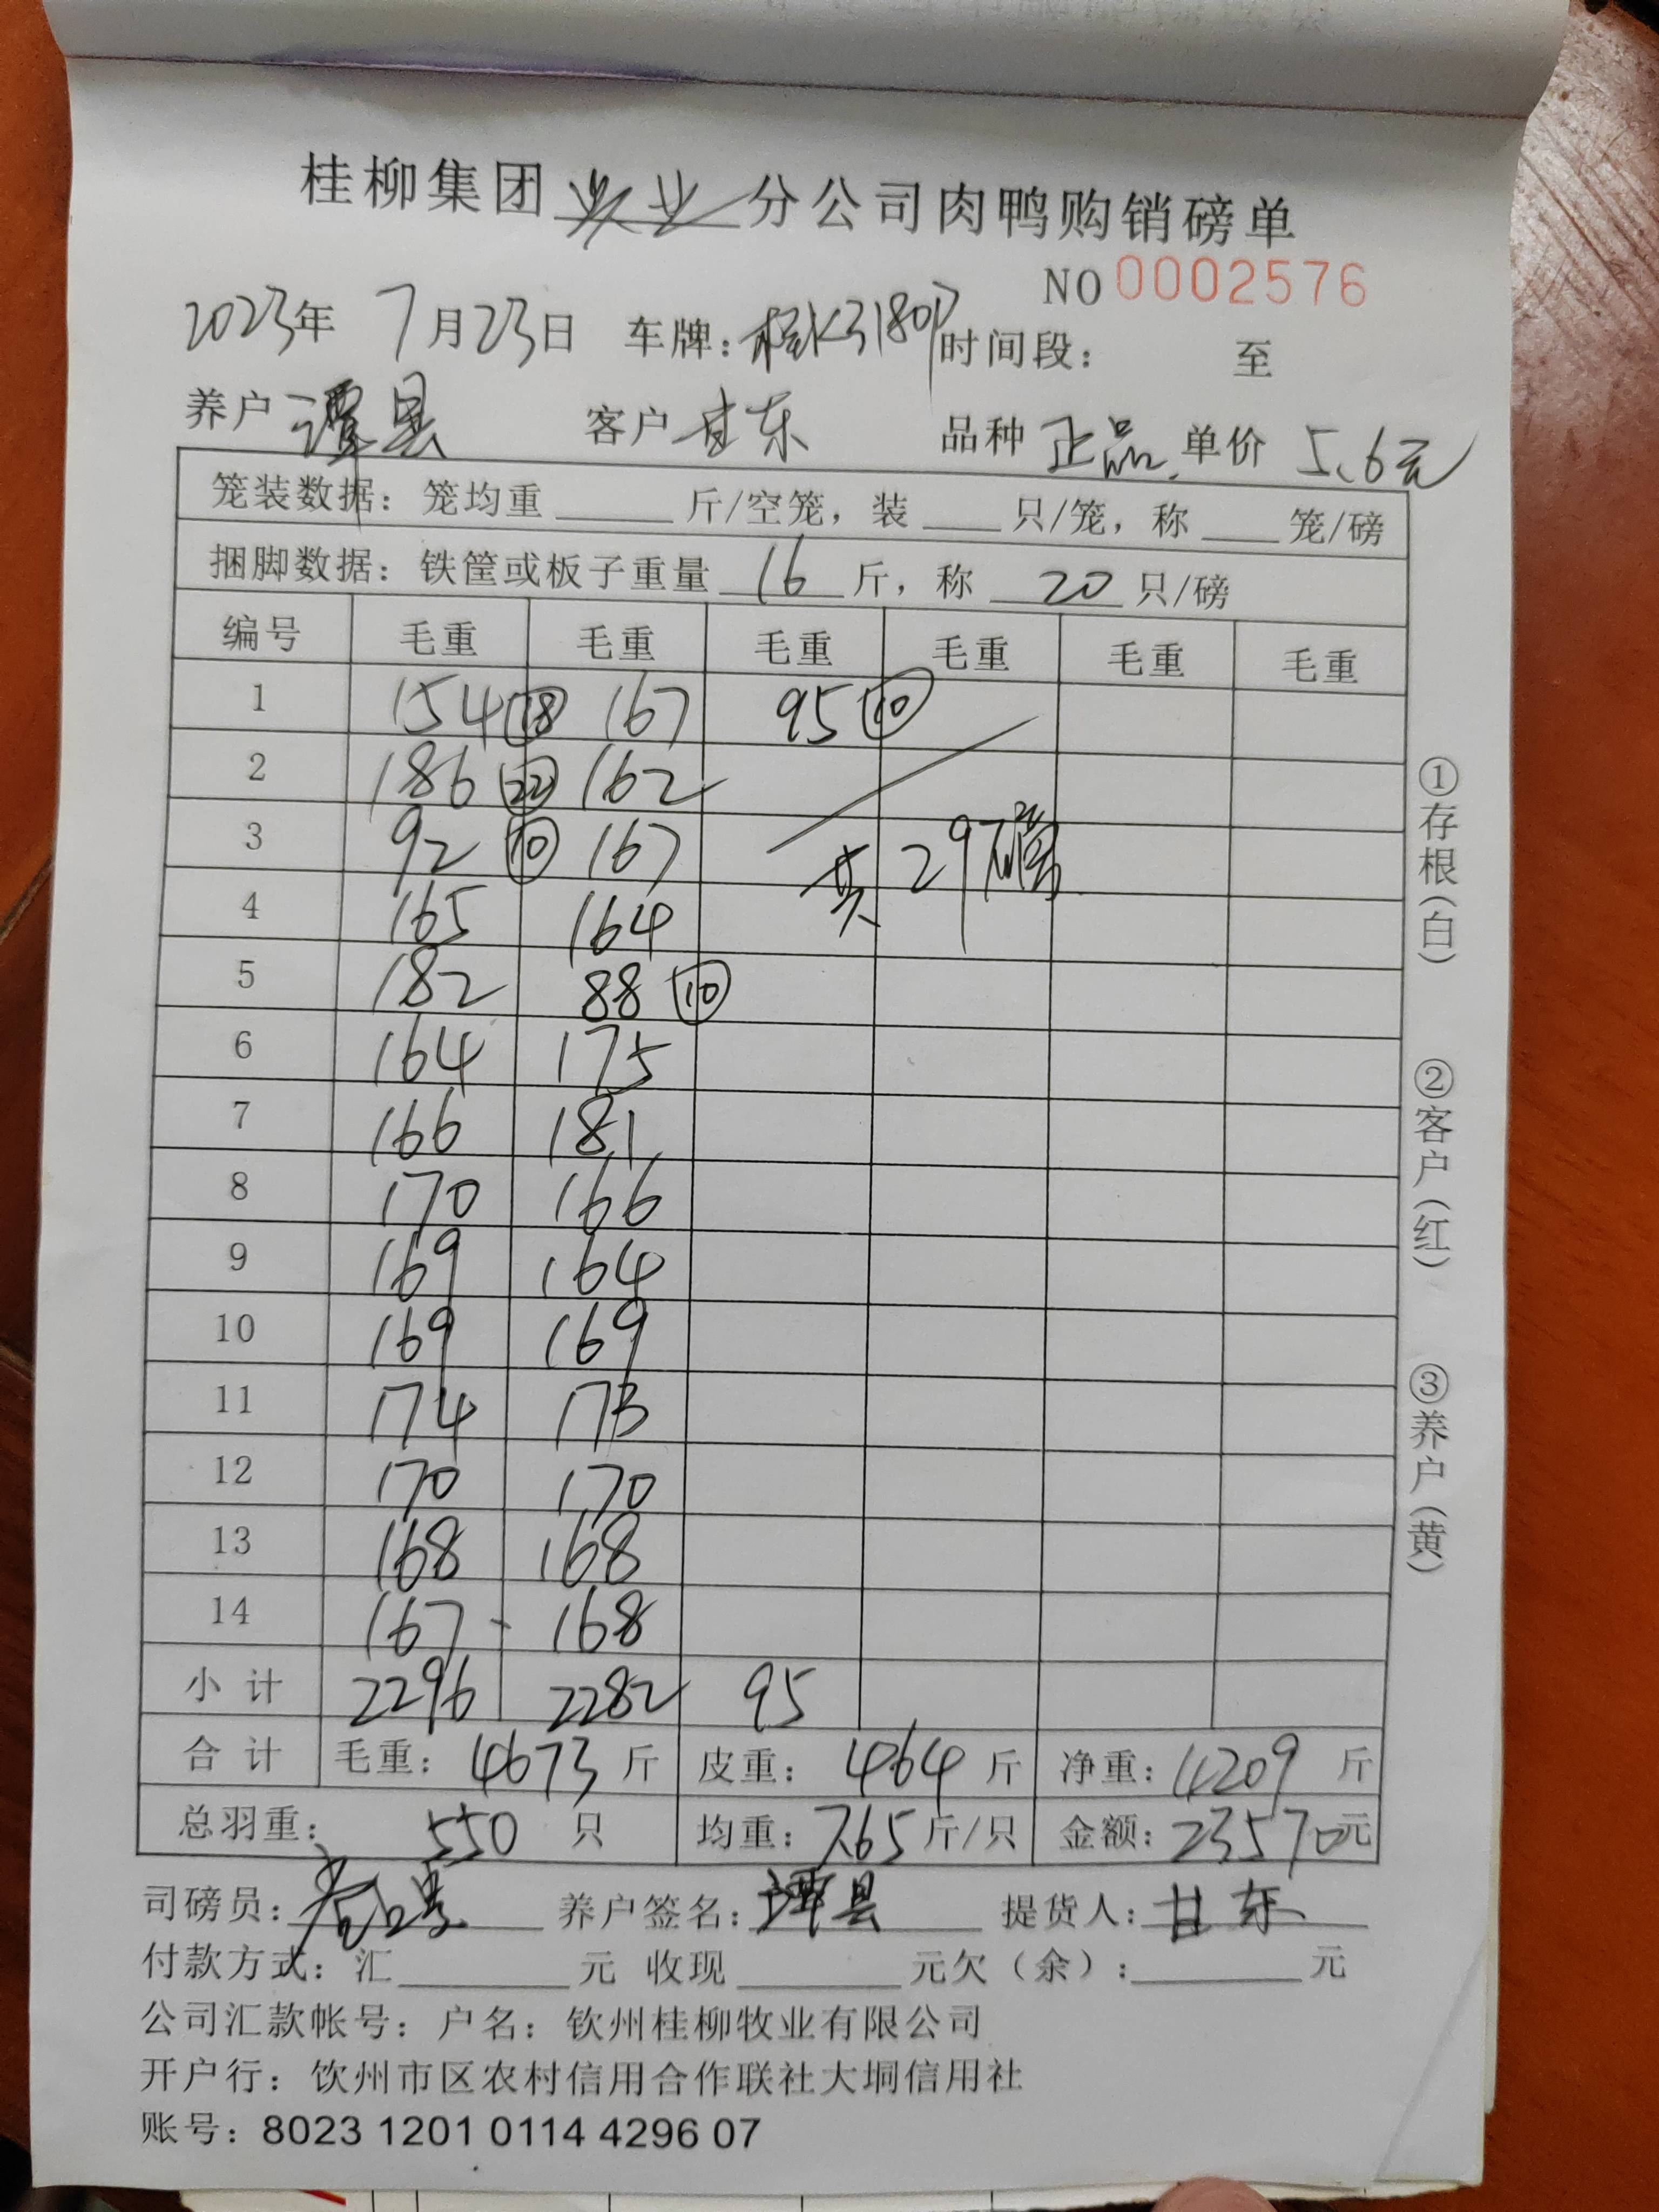 桂柳集团兴业分公司肉鸭购销磅单
NO 0002576
2023年 7月23日 车牌：桂K3180P 时间段： 至
养户 谭县 客户 甘东 品种 正品 单价 5.6元
笼装数据：笼均重 斤/空笼，装 只/笼，称 笼/磅
捆脚数据：铁筐或板子重量 16 斤，称 20 只/磅
编号 毛重 毛重 毛重 毛重 毛重 毛重
1 154 ⑱ 167 95 ⑩
2 186 ㉒ 162
3 92 ⑩ 167 共 29磅
4 165 164
5 182 88 ⑩
6 164 175
7 166 181
8 170 166
9 169 164
10 169 169
11 174 173
12 170 170
13 168 168
14 167 168
小计 2296 2282 95
合计 毛重：4673 斤 皮重：464 斤 净重：4209 斤
总羽重：550 只 均重：7.65 斤/只 金额：23570元
司磅员： 养户签名：谭县 提货人：甘东
付款方式：汇 元 收现 元欠（余）： 元
公司汇款帐号：户名：钦州桂柳牧业有限公司
开户行：饮州市区农村信用合作联社大垌信用社
账号：8023 1201 0114 4296 07
①存根（白） ②客户（红） ③养户（黄）